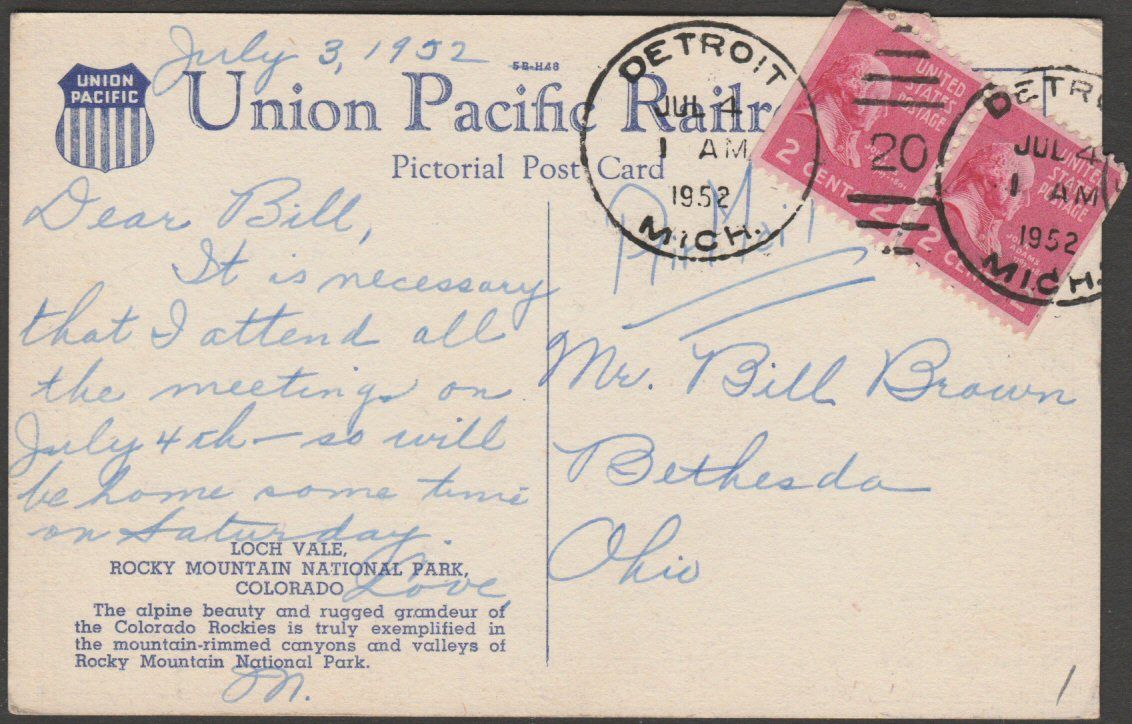 July 3, 1952
5B-H48
UNION
PACIFIC
Union Pacific Railro
Pictorial Post Card
DETROIT
JUL 4
1 AM
1952
MICH.
20
UNITED
STATES
POSTAGE
2 CENTS 2
DETRO
JUL 4
1 AM
1952
MICH.
UNITED
STATES
POSTAGE
JOHN
ADAMS
2 CENTS 2
Air Mail
Dear Bill,
It is necessary
that I attend all
the meetings on
July 4th - so will
be home some time
on Saturday.
Love,
M.
LOCH VALE,
ROCKY MOUNTAIN NATIONAL PARK,
COLORADO
The alpine beauty and rugged grandeur of
the Colorado Rockies is truly exemplified in
the mountain-rimmed canyons and valleys of
Rocky Mountain National Park.
Mr. Bill Brown
Bethesda
Ohio
1